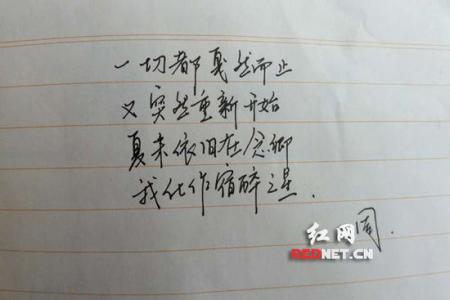 一切都戛然而止
又突然重新开始
夏末依旧在念卿
我化作宿醉之星.
周.
红网
REDNET.CN